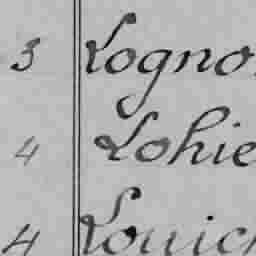 3 Logno
4 Lohie
4 Louich